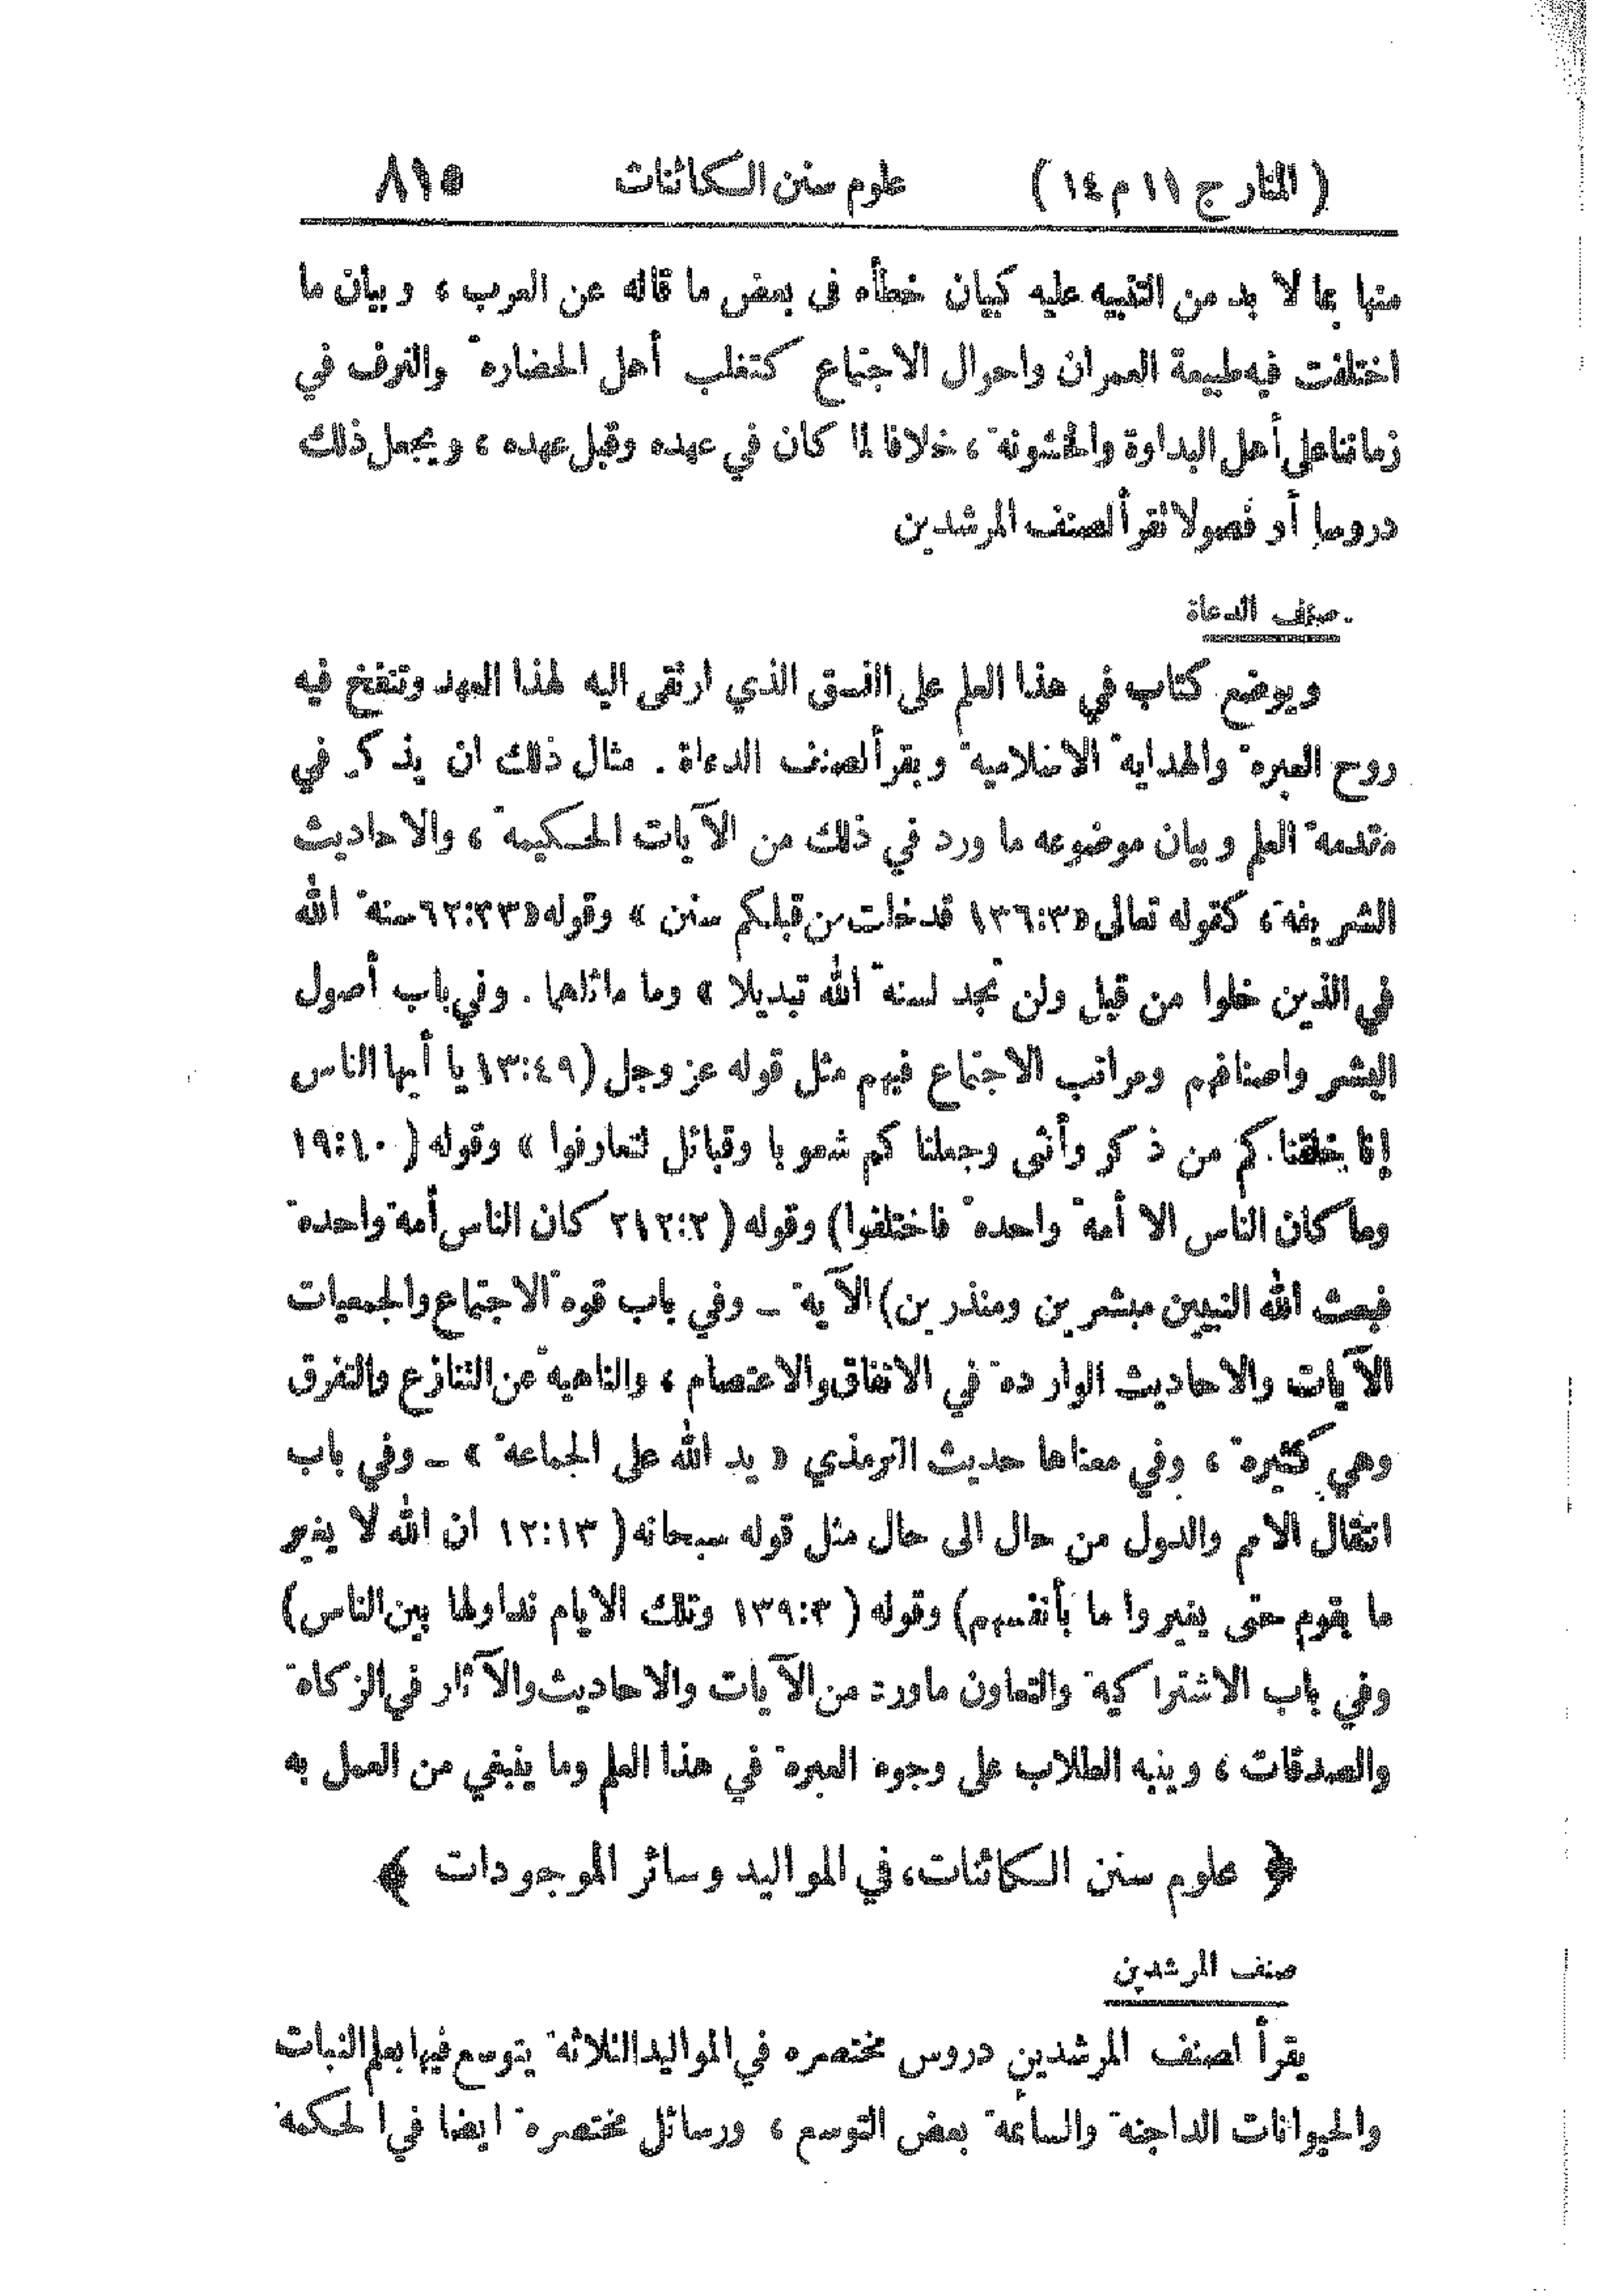 ( المنار ج ١١ م ١٤ ) علوم سنن الكائنات ٨١٥
منها بما لا بد من التنبيه عليه كبيان خطأه فى بعض ما قاله عن العرب ، وبيان ما
اختلفت فيه طبيعة العمران واحوال الاجتماع كتغلب أهل الحضارة والترف في
زماننا على أهل البداوة والخشونة ، خلافا لما كان في عهده وقبل عهده ، ويجعل ذلك
دروسا أو فصولا تقرأ لصنف المرشدين
صنف الدعاة
ويوضع كتاب في هذا العلم على النسق الذي ارتقى اليه لهذا العهد وتنفخ فيه
روح العبرة والهداية الاسلامية ويقرأ لصنف الدعاة . مثال ذلك ان يذكر في
مقدمة العلم وبيان موضوعه ما ورد في ذلك من الآيات الحكيمة ، والاحاديث
الشريفة ، كقوله تعالى «١٣٦:٣ قد خلت من قبلكم سنن » وقوله «٦٢:٣٣ سنة الله
في الذين خلوا من قبل ولن تجد لسنة الله تبديلا » وما ماثلهما . وفي باب أصول
البشر واصنافهم ومراتب الاجتماع فيهم مثل قوله عز وجل (١٣:٤٩ يا أيها الناس
إنا خلقناكم من ذكر وأنثى وجعلناكم شعوبا وقبائل لتعارفوا » وقوله ( ١٩:١٠
وما كان الناس الا أمة واحدة فاختلفوا) وقوله ( ٢١٢:٢ كان الناس أمة واحدة
فبعث الله النبيين مبشرين ومنذرين) الآية ــ وفي باب قوة الاجتماع والجمعيات
الآيات والاحاديث الواردة في الاتفاق والاعتصام ، والناهية عن التنازع والتفرق
وهي كثيرة ، وفي معناها حديث الترمذي « يد الله على الجماعة » ــ وفي باب
انتقال الامم والدول من حال الى حال مثل قوله سبحانه ( ١٢:١٣ ان الله لا يغير
ما بقوم حتى يغيروا ما بأنفسهم) وقوله ( ١٣٩:٣ وتلك الايام نداولها بين الناس)
وفي باب الاشتراكية والتعاون ماورد من الآيات والاحاديث والآثار في الزكاة
والصدقات ، وينبه الطلاب على وجوه العبرة في هذا العلم وما ينبغي من العمل به
﴿ علوم سنن الكائنات، في المواليد وسائر الموجودات ﴾
صنف المرشدين
يقرأ لصنف المرشدين دروس مختصرة في المواليد الثلاثة يتوسع فيها بعلم النبات
والحيوانات الداجنة والسائمة بعض التوسع ، ورسائل مختصرة ايضا في الحكمة